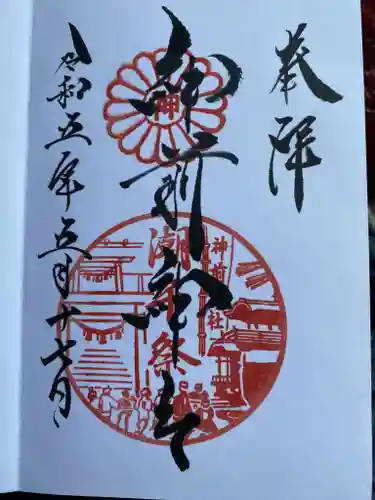 奉拝
神前神社
神
潮神祭
神前神社
令和五年五月十七日